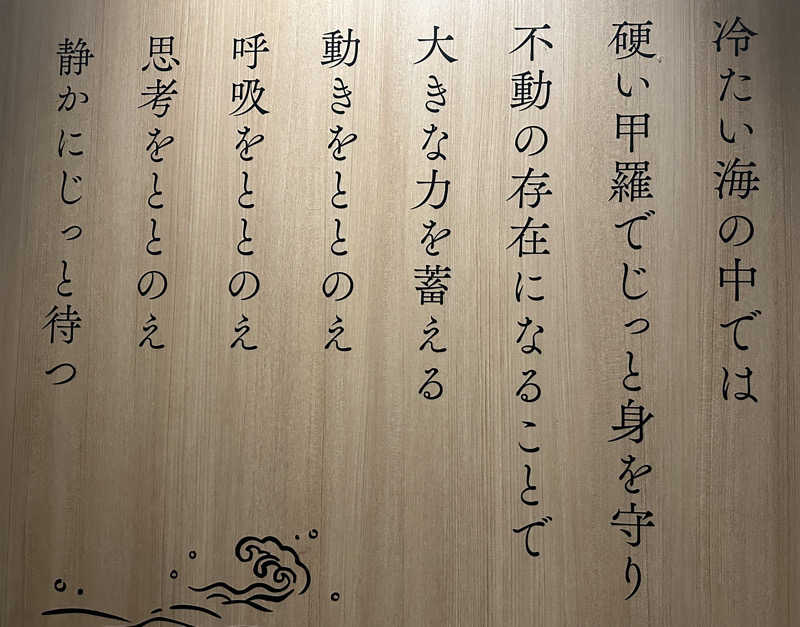 冷たい海の中では
硬い甲羅でじっと身を守り
不動の存在になることで
大きな力を蓄える
動きをととのえ
呼吸をととのえ
思考をととのえ
静かにじっと待つ